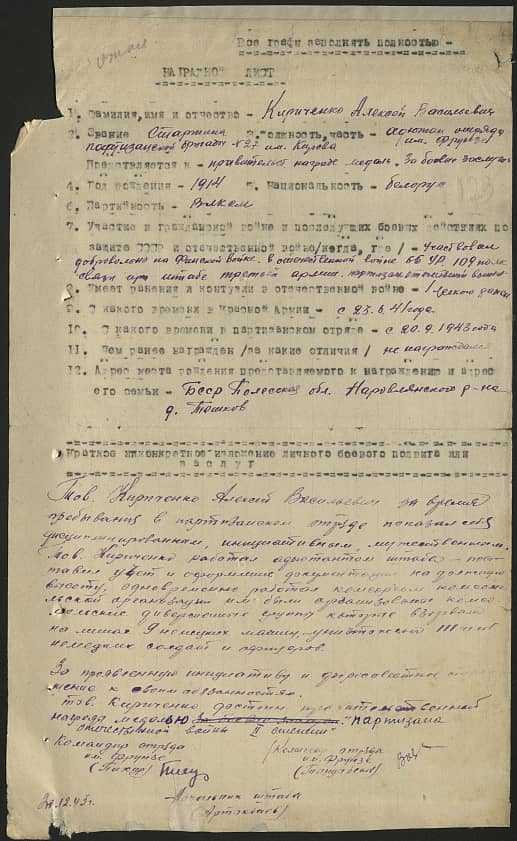 Все графы заполнять полностью -
НАГРАДНОЙ ЛИСТ
1. Фамилия, имя и отчество - Кириченко Алексей Васильевич
2. Звание Старшина 3. Должность, часть - адютант отряда
партизанской бригады №27 им. Кирова им. Фрунзе
Представляется к - правительст. награде медаль "За боевые заслуги
4. Год рождения - 1914 5. Национальность - белорус
6. Партийность - Влксм
7. Участие в гражданской войне и последующих боевых действиях по
защите СССР и отечественной войне /когда, где/ - Участвовал
добровольно на Финской войне. в отечественной войне 65 УР 109 полк
связи при штабе третьей армии.
8. Имеет ранения и контузии в отечественной войне -
9. С какого времени в Красной Армии - с 23.6.41 года.
10. С какого времени в партизанском отряде - с 20.9.1943 года
11. Чем ранее награжден /за какие отличия/ не награждался
12. Адрес места рождения представляемого к награждению и адрес
его семьи - БССР Полесская обл. Наровлянского р-на
д. Тешков
Краткое и конкретное изложение личного боевого подвига или
заслуг
Тов. Кириченко Алексей Васильевич за время
пребывания в партизанском отряде показал себя
дисциплинированным, инициативным, мужественным.
Тов. Кириченко работал адютантом штаба - пос-
тавил учет и оформление документации на должную
высоту, одновременно работал комсоргом комсомо-
льской организации им были организованы комсо-
мольские диверсионные группы которые взорвали
на минах 9 немецких машин, уничтожено
немецких солдат и офицеров.
За проявленную инициативу и добросовестное отно-
шение к своим обязанностям.
тов. Кириченко достоин правительственной
награды медалью за боевые заслуги. "Партизана
отечественной войны II степени"
Командир отряда
им. Фрунзе
Комиссар отряда
им. Фрунзе
Начальник штаба
12.43 г.